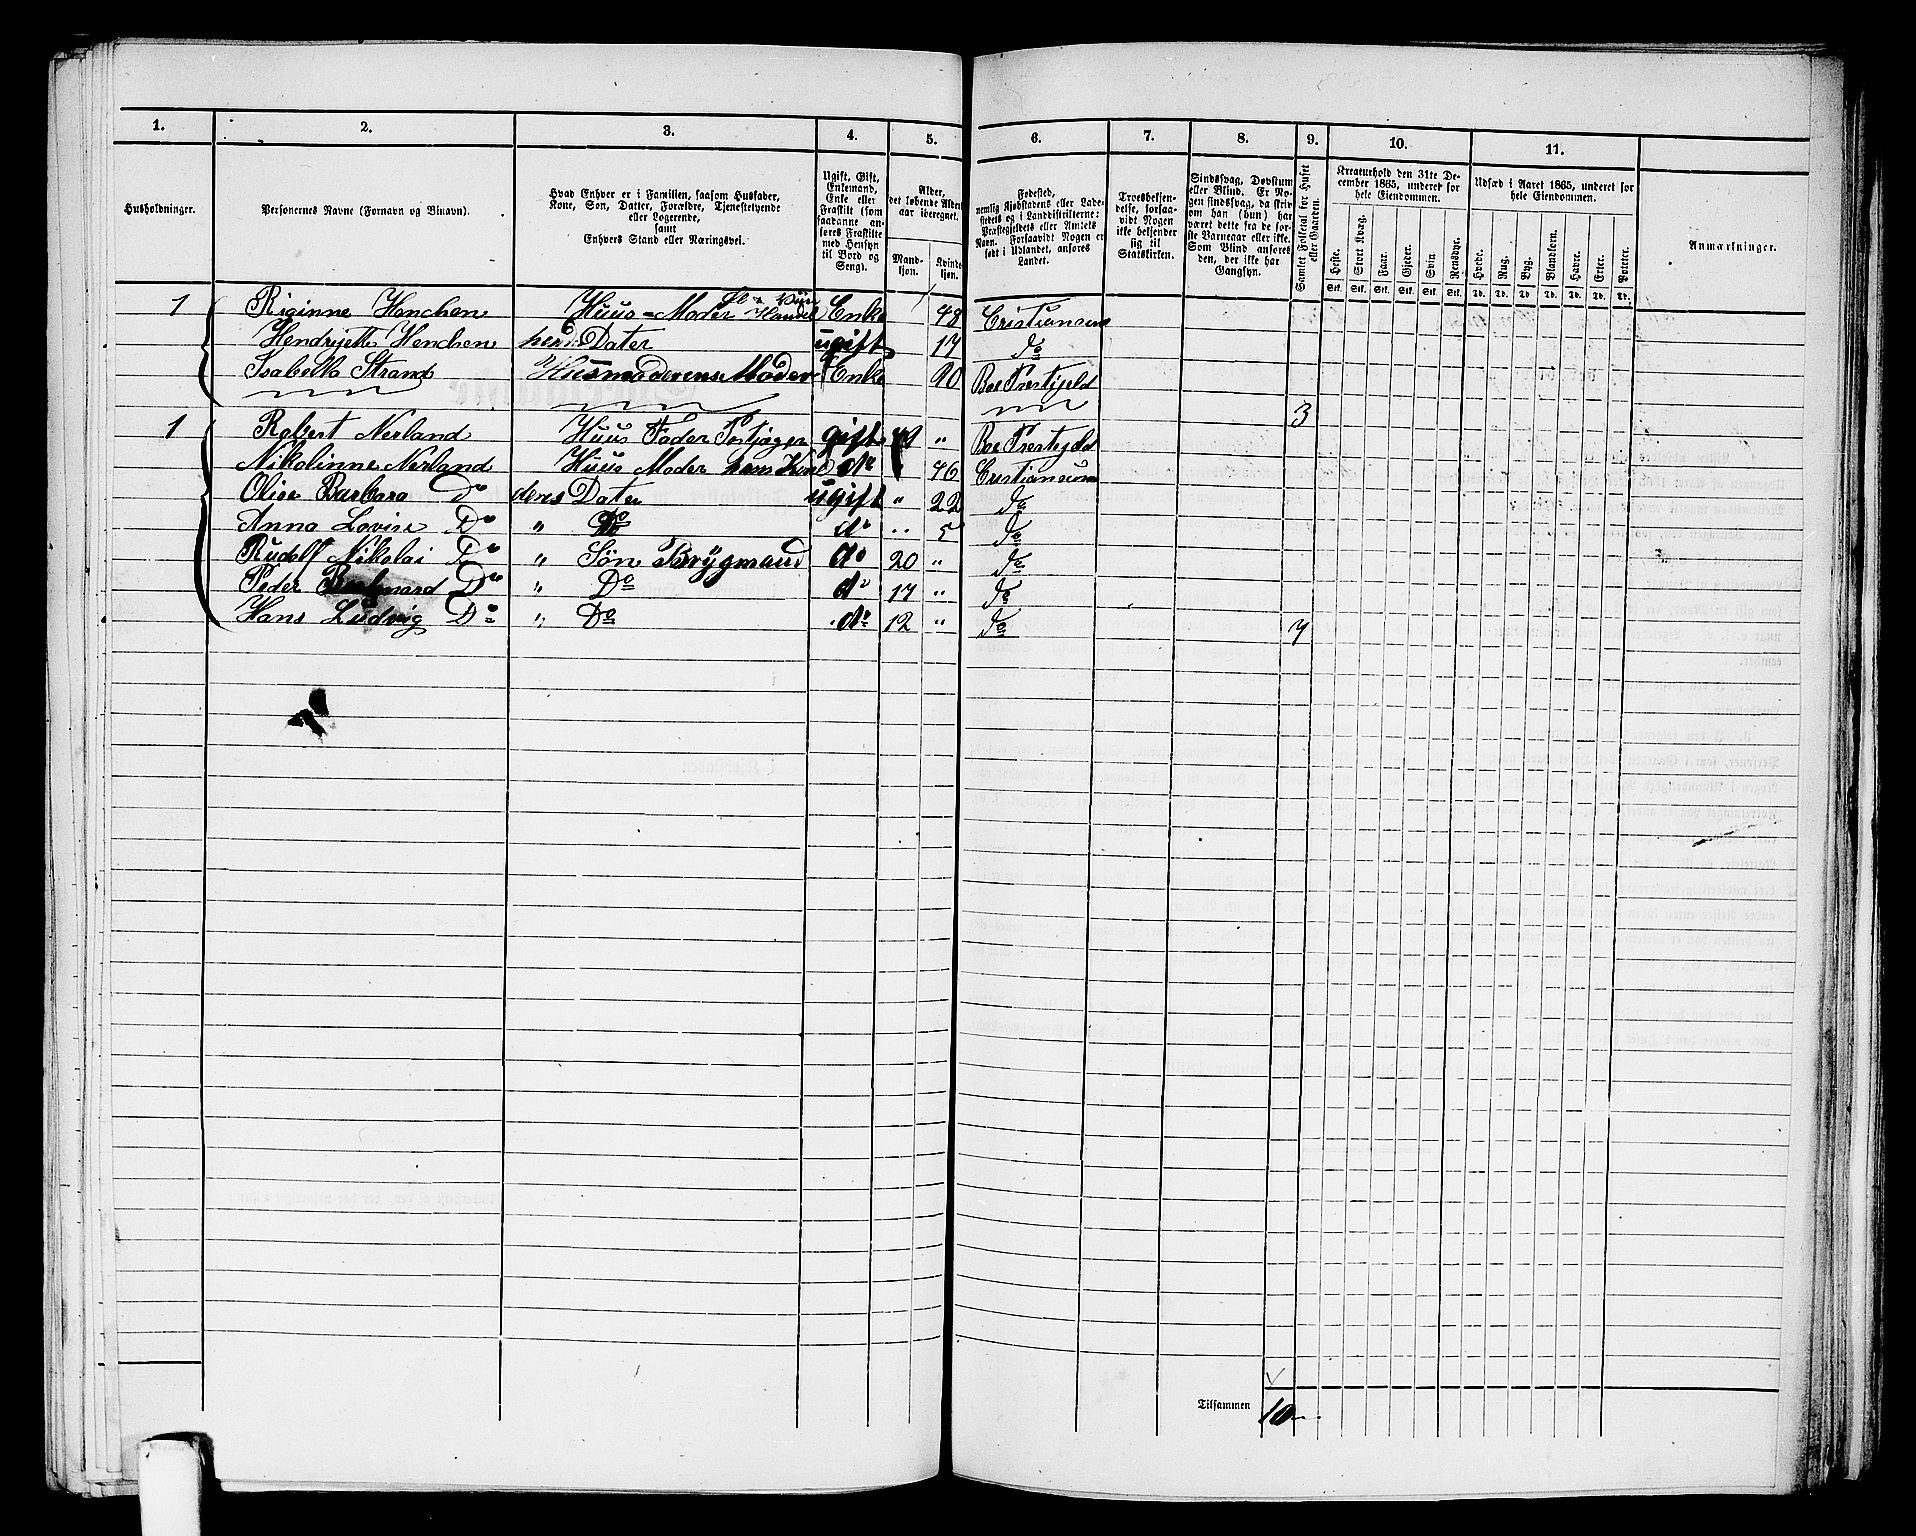 1. 2. 3. 4. 5. 6. 7. 8. 9. 10. 11.
Husholdninger.
Personernes Navne (Fornavn og Binavn).
Hvad Enhver er i Familien, saasom Husfader,
Kone, Søn, Datter, Forældre, Tjenestetyende
eller Logerende,
samt
Enhvers Stand eller Næringsvei.
Ugift, Gift,
Enkemand,
Enke eller
Fraskilt (som
saadanne an-
føres Fraskilte
med Hensyn
til Bord og
Seng).
Alder,
det løbende Alders-
aar iberegnet.
Mand-
kjøn.
Kvinde-
kjøn.
Fødested,
nemlig Kjøbstadens eller Lade-
stedets og i Landdistrikterne:
Præstegjeldets eller Amtets
Navn. Forsaavidt Nogen er
født i Udlandet, anføres
Landet.
Troesbekjen-
delse, forsaa-
vidt Nogen
ikke bekjender
sig til
Statskirken.
Sindssvag, Døvstum
eller Blind. Er No-
gen sindssvag, da skriv
om han (hun) har
været dette fra de før-
ste Barneaar eller ikke.
Som Blind ansøres
den, der ikke har
Gangsyn.
Samlet Folketal for Huset
eller Gaarden.
Kreaturhold den 31te De-
cember 1865, underet for
hele Eiendommen.
Heste. Stort Kvæg. Faar. Gjeder. Svin. Rensdyr.
Stk. Stk. Stk. Stk. Stk. Stk.
Udsæd i Aaret 1865, underet for
hele Eiendommen.
Hvede. Rug. Byg. Blandkorn. Havre. Erter. Poteter.
Td. Td. Td. Td. Td. Td. Td.
Anmærkninger.
1 Riginne Henchen Huus-Moder Handel Enke 48 Cristiansund
Hendrijette Henchen hendes Dater ugift 17 do
Isabella Strand Husmoderens Moder Enke 90 Boe Prestegjeld
3
1 Robert Nerland Huus Fader gift 49 " Boe Prestegjeld
Nikolinne Nerland Huus Moder hans Kone do 46 Cristiansund
Olise Barbara Do deres Dater ugift " 22 do
Anna Lovise Do " Do do " 5 do
Rudolf Nikolai Do " Søn Brygmand do 20 " do
Peder Do " Do do 17 " do
Hans Ludvig Do " Do do 12 " do 7
Tilsammen 10